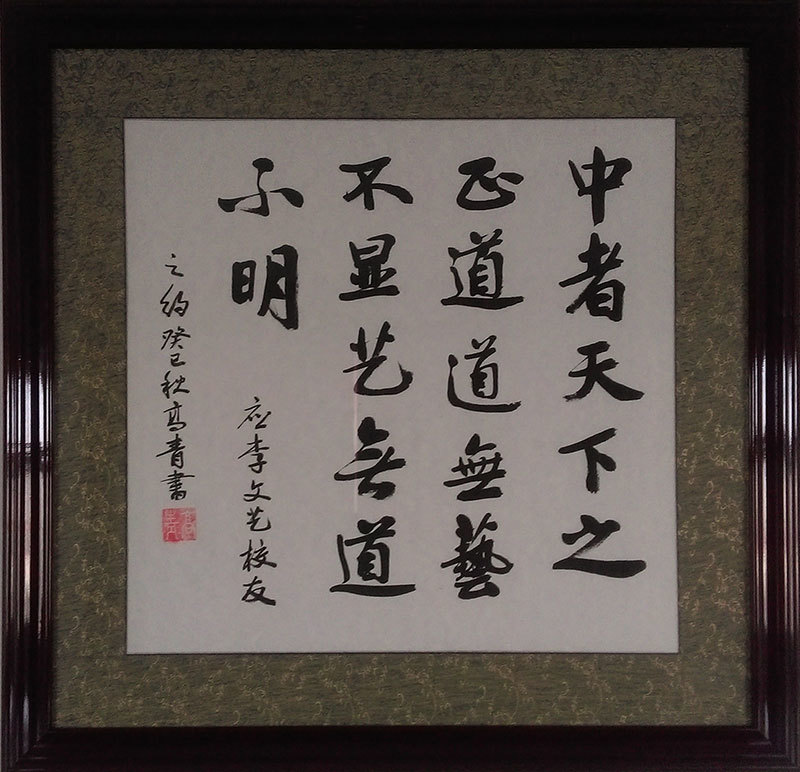 中者天下之
正道道無藝
不显艺无道
不明
应李文艺校友
之约癸巳秋高青書